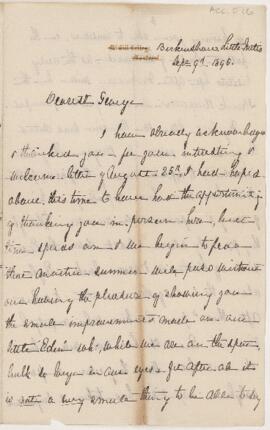 ACC. 516
McGill College
Montreal
Birkenshaw, Little Metis
Sept 9th 1895.
Dearest George
I have already acknowledged
& thanked you for your interesting &
welcome letter of August 25th, I had hoped
about this time to have had the opportunity
of thanking you in person here, but
time speeds on & we begin to fear
that another summer will pass without
our having the pleasure of showing you
the small improvements made on our
little "Eden" wh. while we are on the spot
bulk so large in our eyes. Yet after all it
is not a very small thing to be able to lay